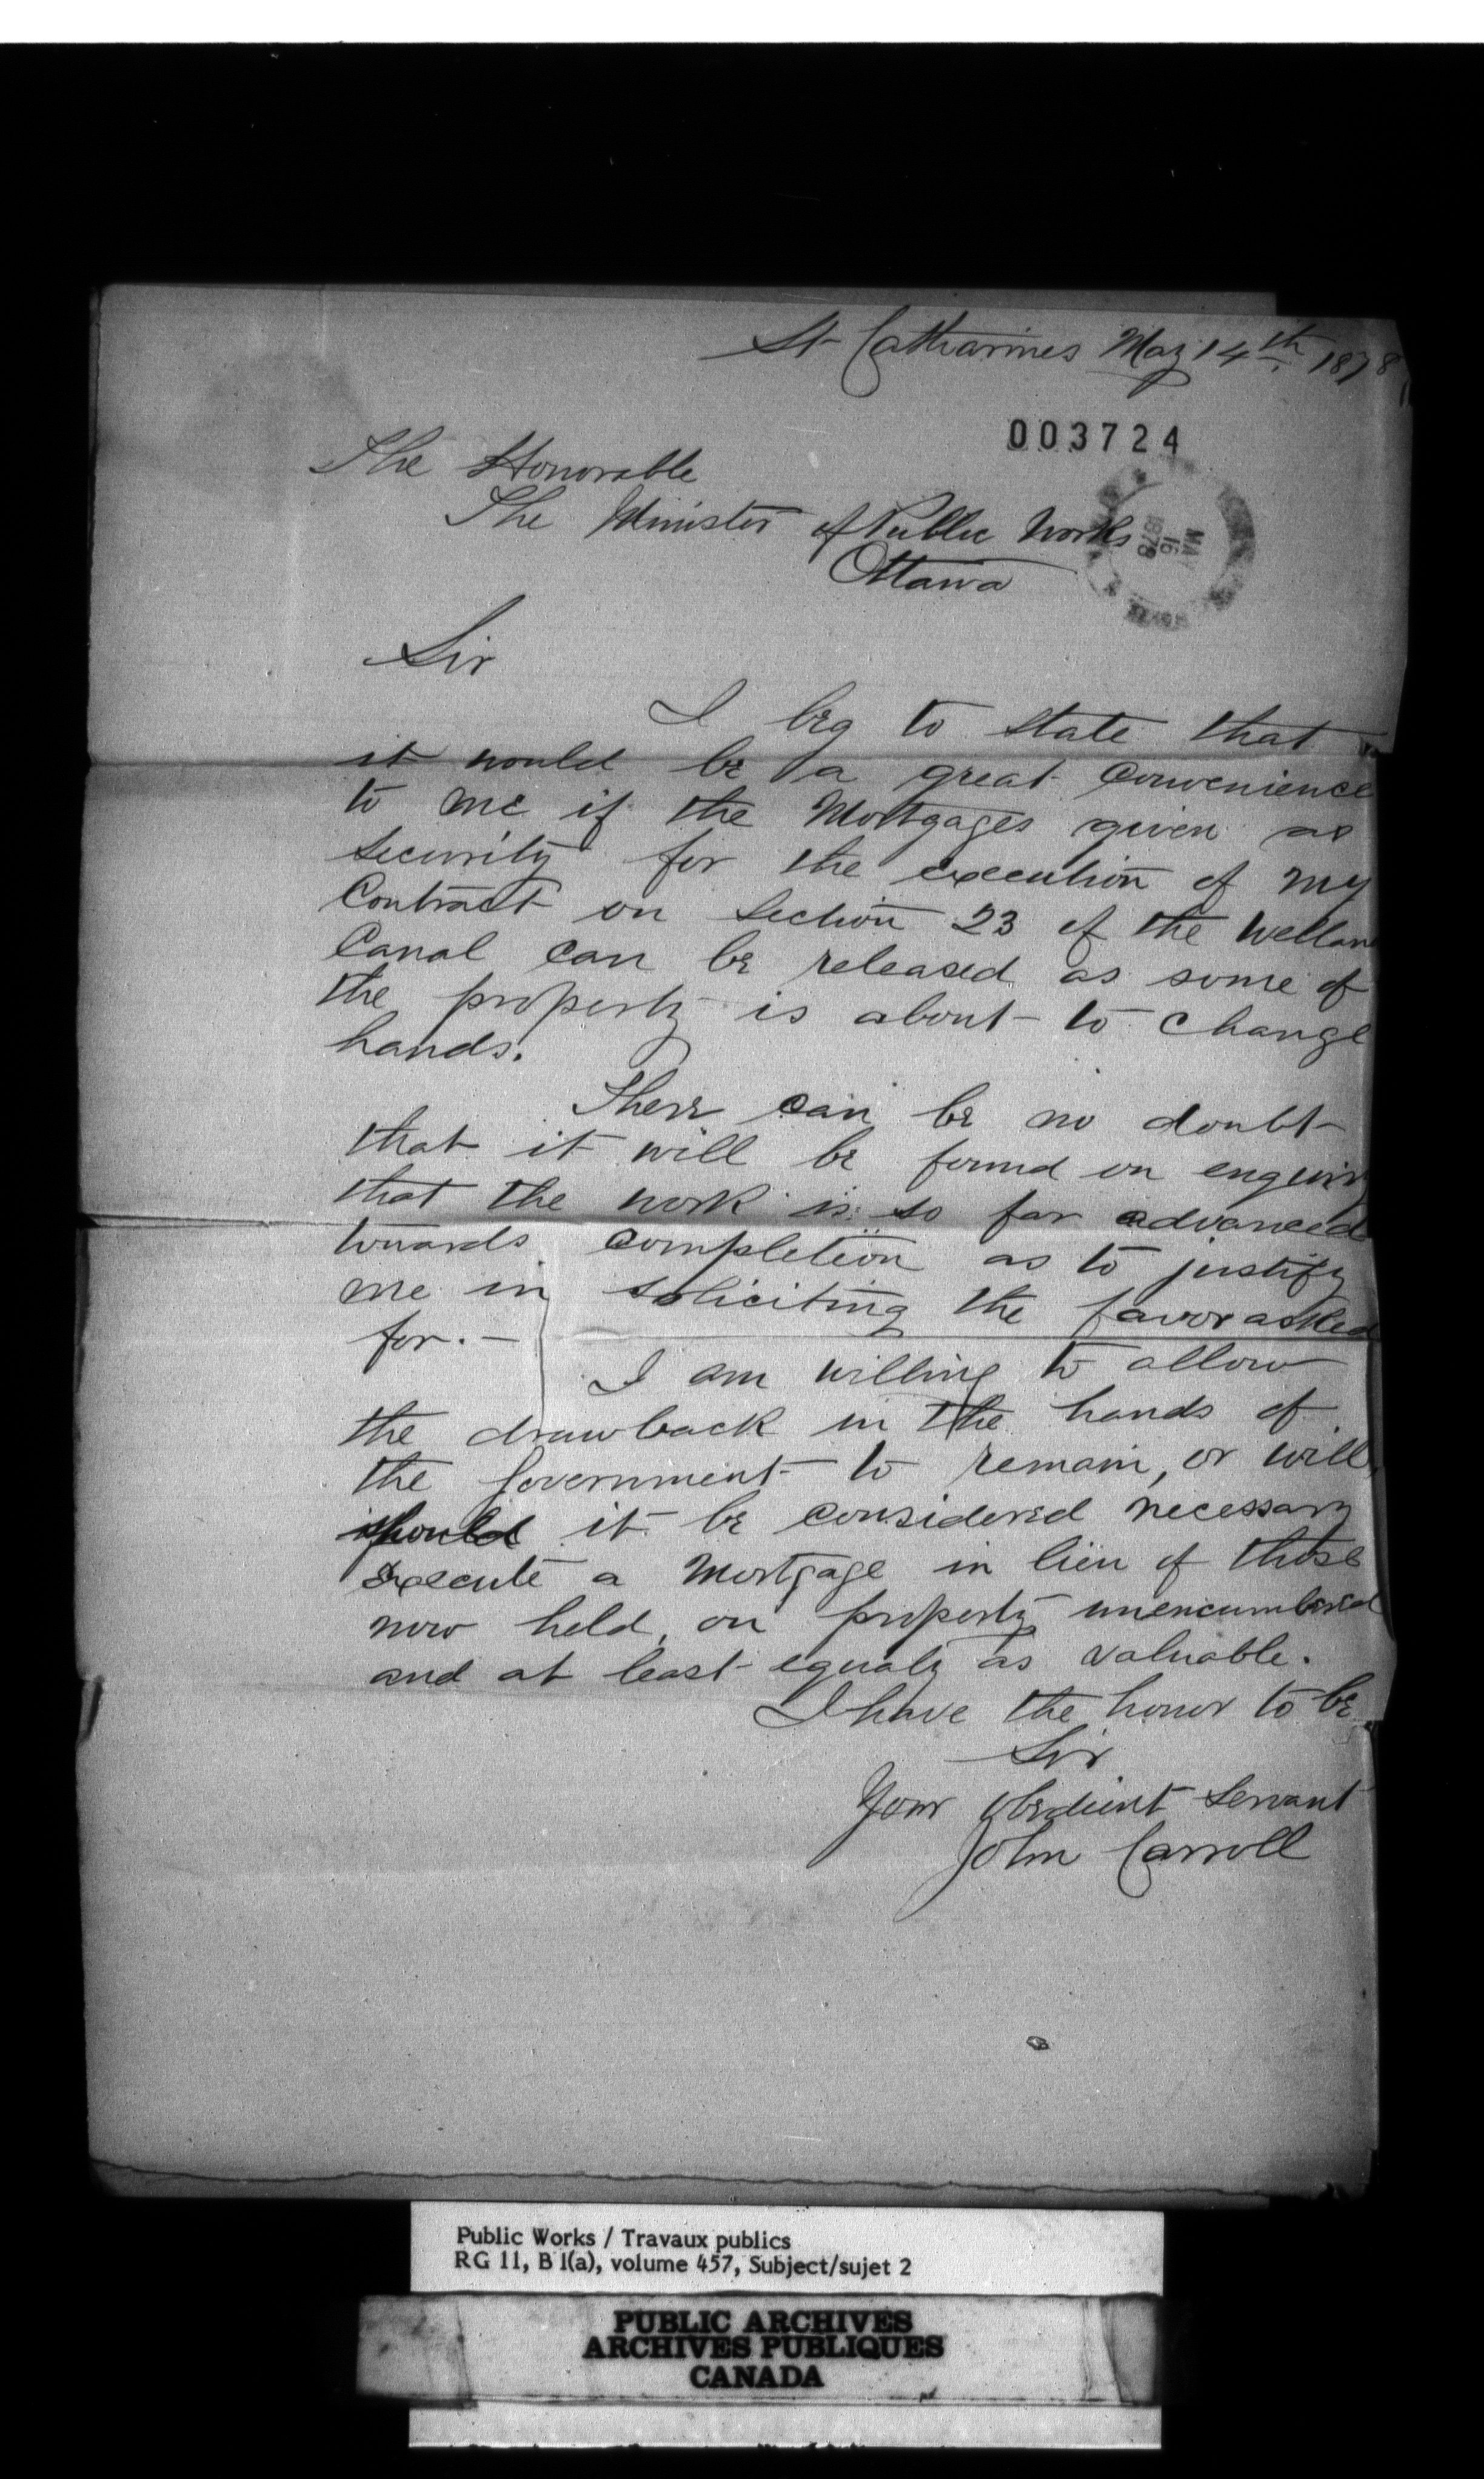 St Catharines May 14th. 1878
003724
The Honorable
The Minister of Public Works
MAY
16
1878
Ottawa
Sir
I beg to state that
it would be a great convenience
to me if the Mortgages given as
security for the execution of my
Contract on Section 23 of the Wellan
Canal can be released as some of
the property is about to change
hands.
There can be no doubt
that it will be found on enquiry
that the work is so far advanced
towards completion as to justify
me in soliciting the favor asked
for. —
I am willing to allow
the drawback in the hands of
the Government to remain, or will,
should it be considered necessary
execute a Mortgage in lieu of those
now held, on property unencumbered
and at least equaly as valuable.
I have the honor to be
Sir
Your obedient Servant
John Carroll
Public Works / Travaux publics
RG 11, B 1(a), volume 457, Subject/sujet 2
PUBLIC ARCHIVES
ARCHIVES PUBLIQUES
CANADA